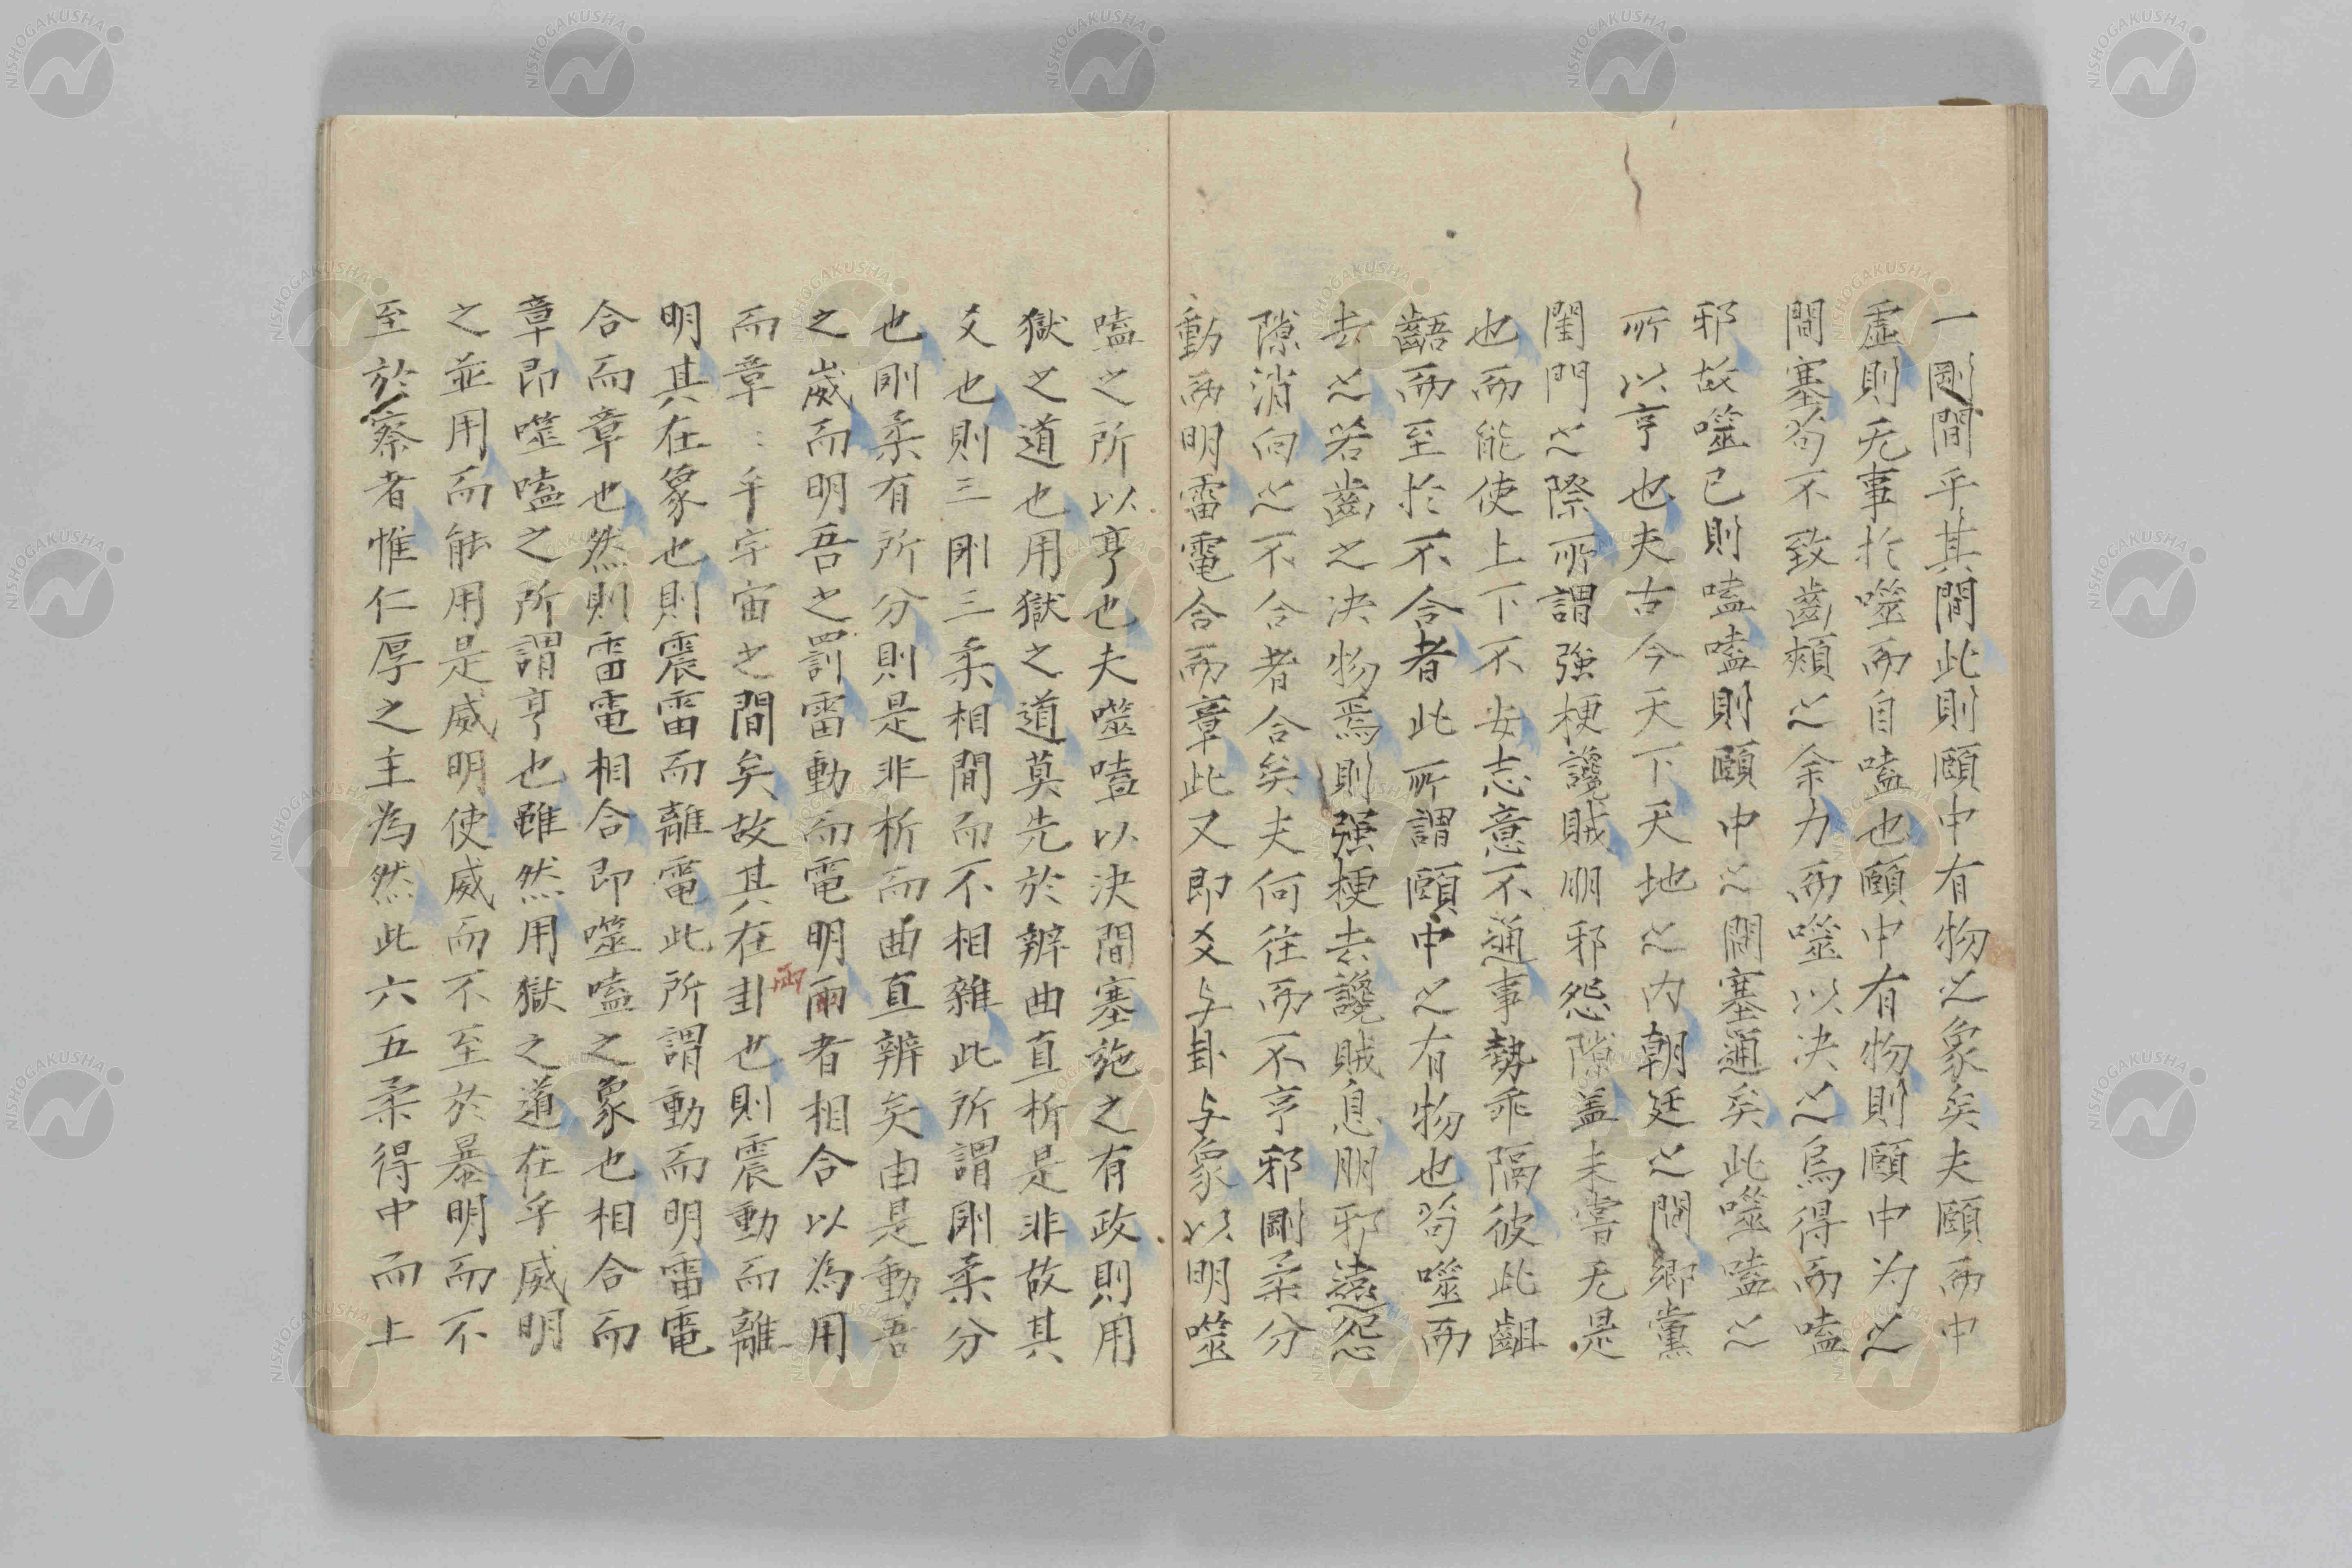 一剛間乎其間此則頤中有物之象矣夫頤而中
虛則无事於噬而自嗑也頤中有物則頤中为之
間塞苟不致齒頰之余力而噬以决之烏得而嗑
邪故噬已則嗑嗑則頤中之間塞通矣此噬嗑之
所以亨也夫古今天下天地之内朝廷之間鄉黨
閨門之際所謂強梗讒賊朋邪怨隙盖未嘗无是
也而能使上下不安志意不通事勢乖隔彼此齟
齬而至於不合者此所謂頤中之有物也苟噬而
去之若齒之决物焉則强梗去讒賊息朋邪遠怨
隙消向之不合者合矣夫何往而不亨邪剛柔分
動而明雷電合而章此又即爻与卦与象以明噬
嗑之所以亨也夫噬嗑以決間塞施之有政則用
獄之道也用獄之道莫先於辨曲直析是非故其
爻也則三剛三柔相間而不相雜此所謂剛柔分
也剛柔有所分則是非析而曲直辨矣由是動吾
之威而明吾之罰雷動而電明兩者相合以為用
而章〻乎宇宙之間矣故其在卦也則震動而離
明其在象也則震雷而離電此所謂動而明雷電
合而章也然則雷電相合即噬嗑之象也相合而
章即噬嗑之所謂亨也雖然用獄之道在乎威明
之並用而能用是威明使威而不至於暴明而不
至於察者惟仁厚之主為然此六五柔得中而上
両
NISHOGAKUSHA